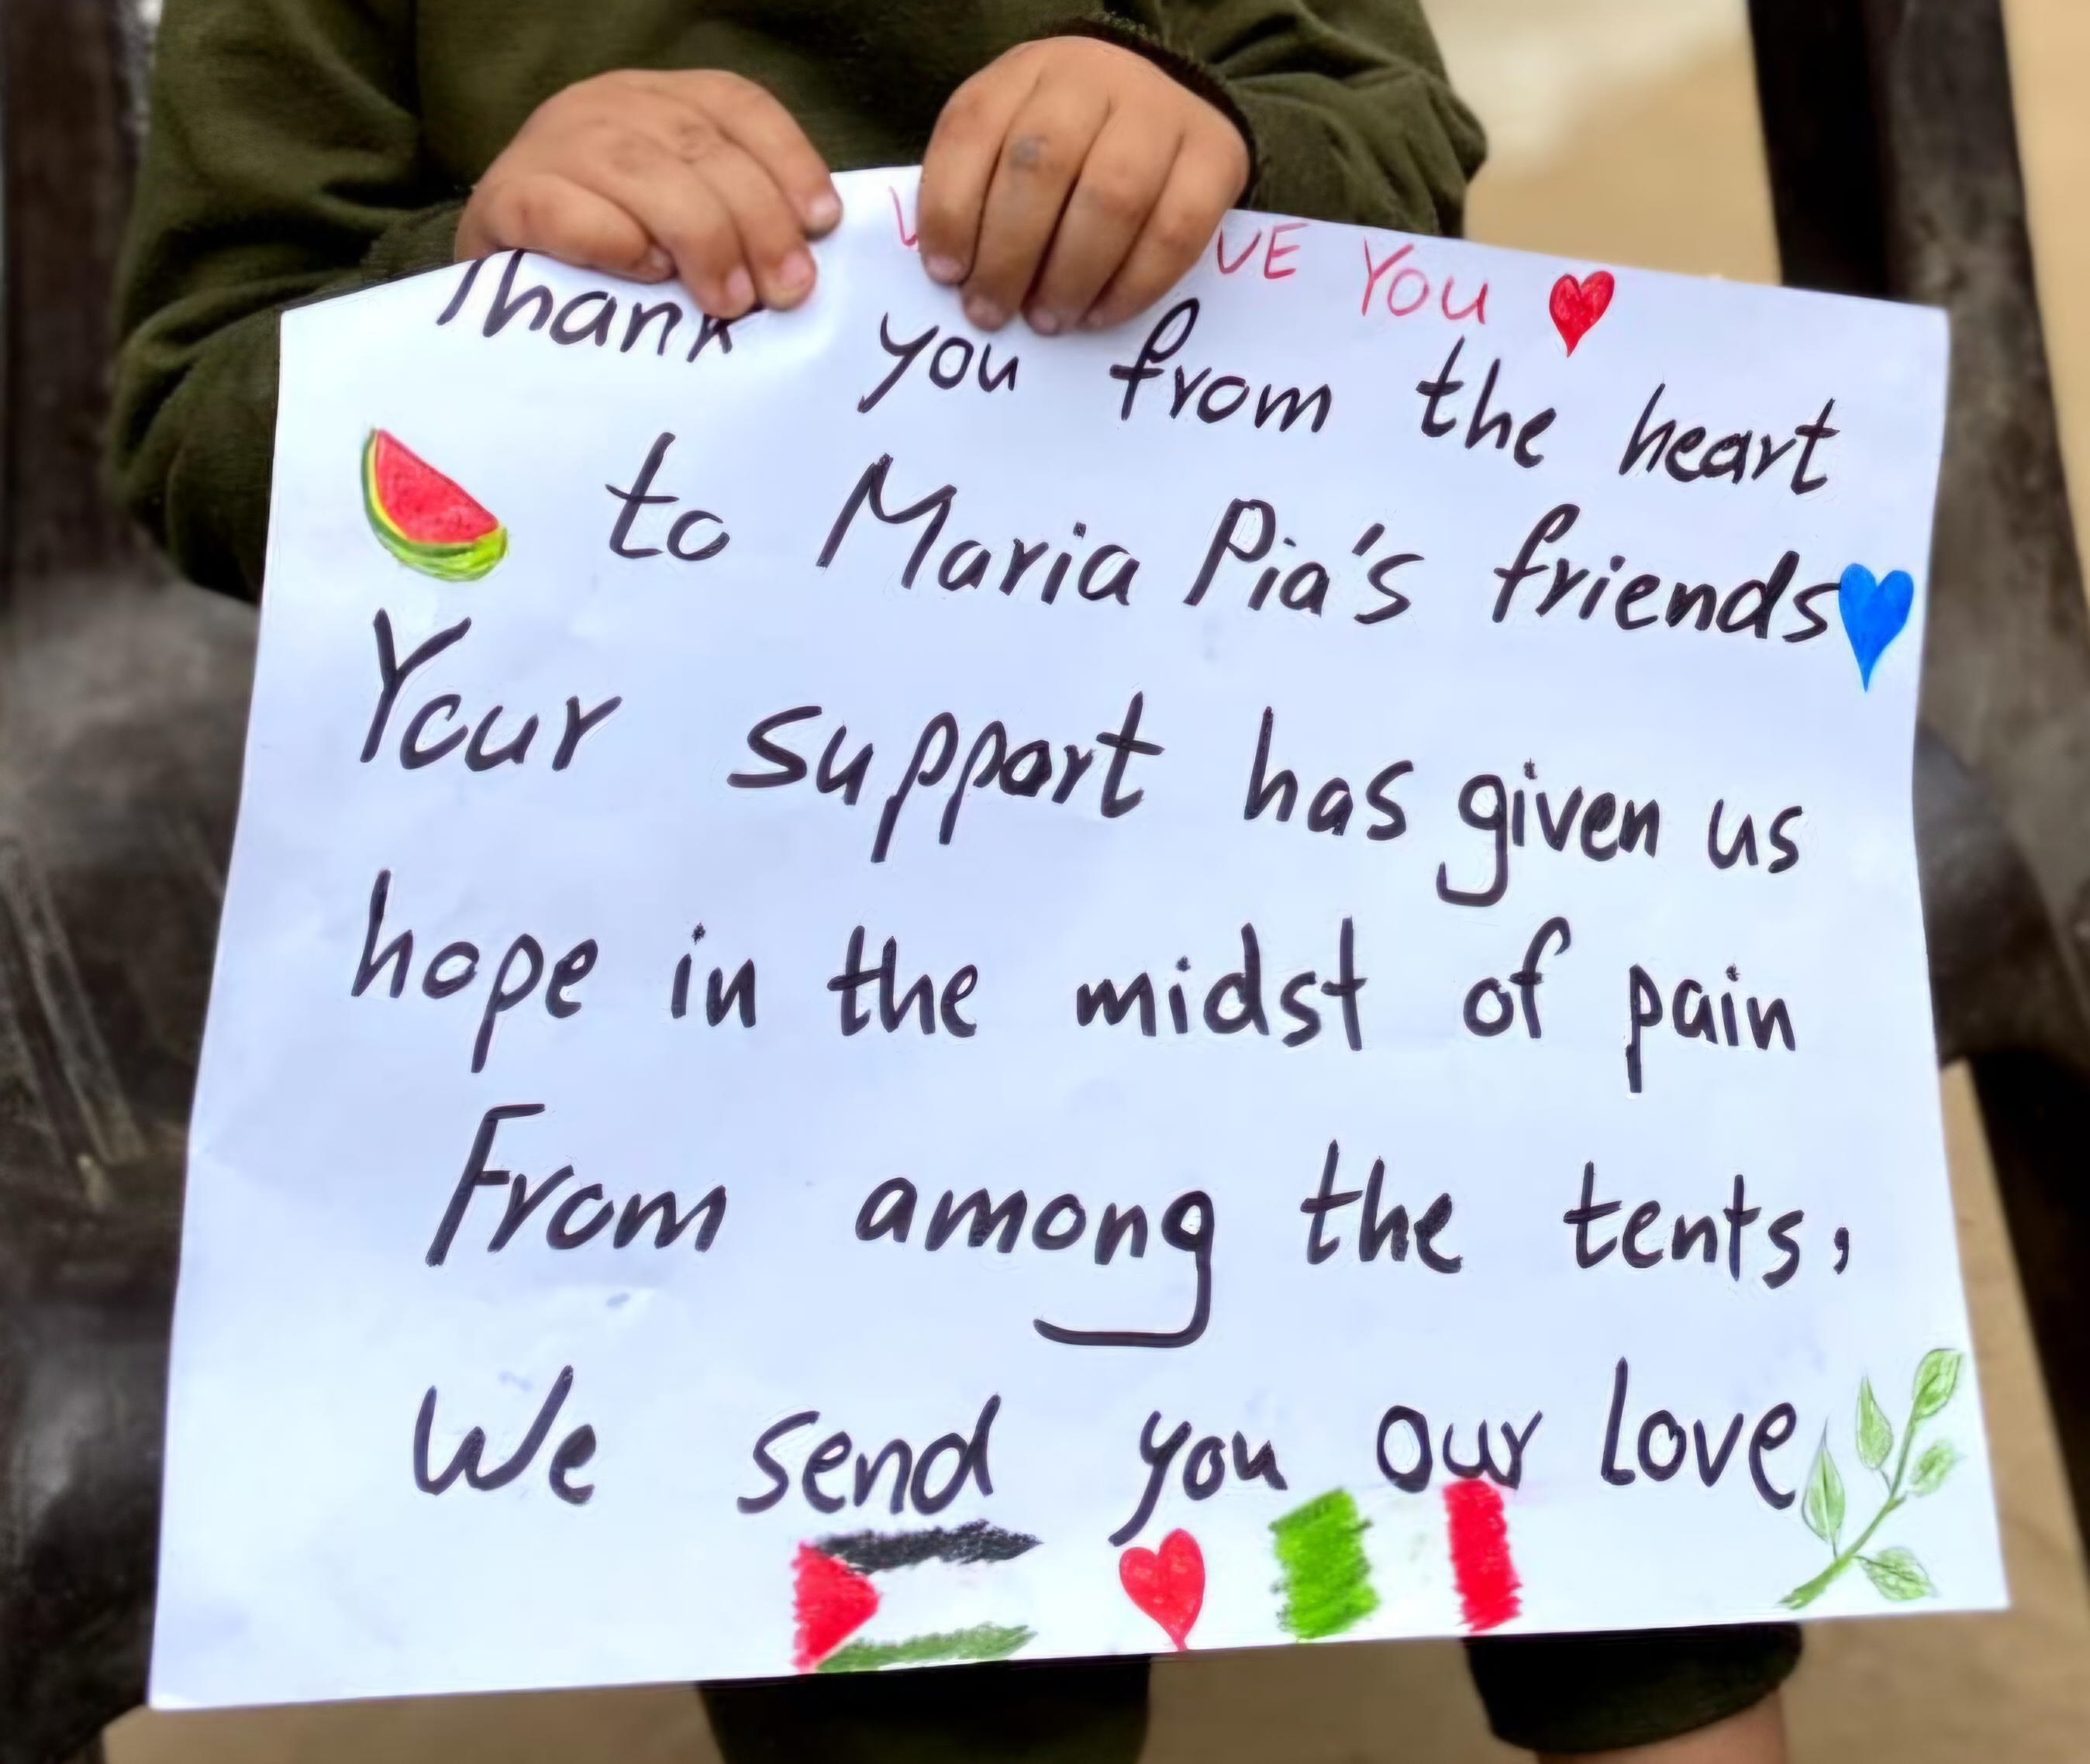 VE YOU
Thank you from the heart
to Maria Pia's friends
Your support has given us
hope in the midst of pain
From among the tents,
We send you our love